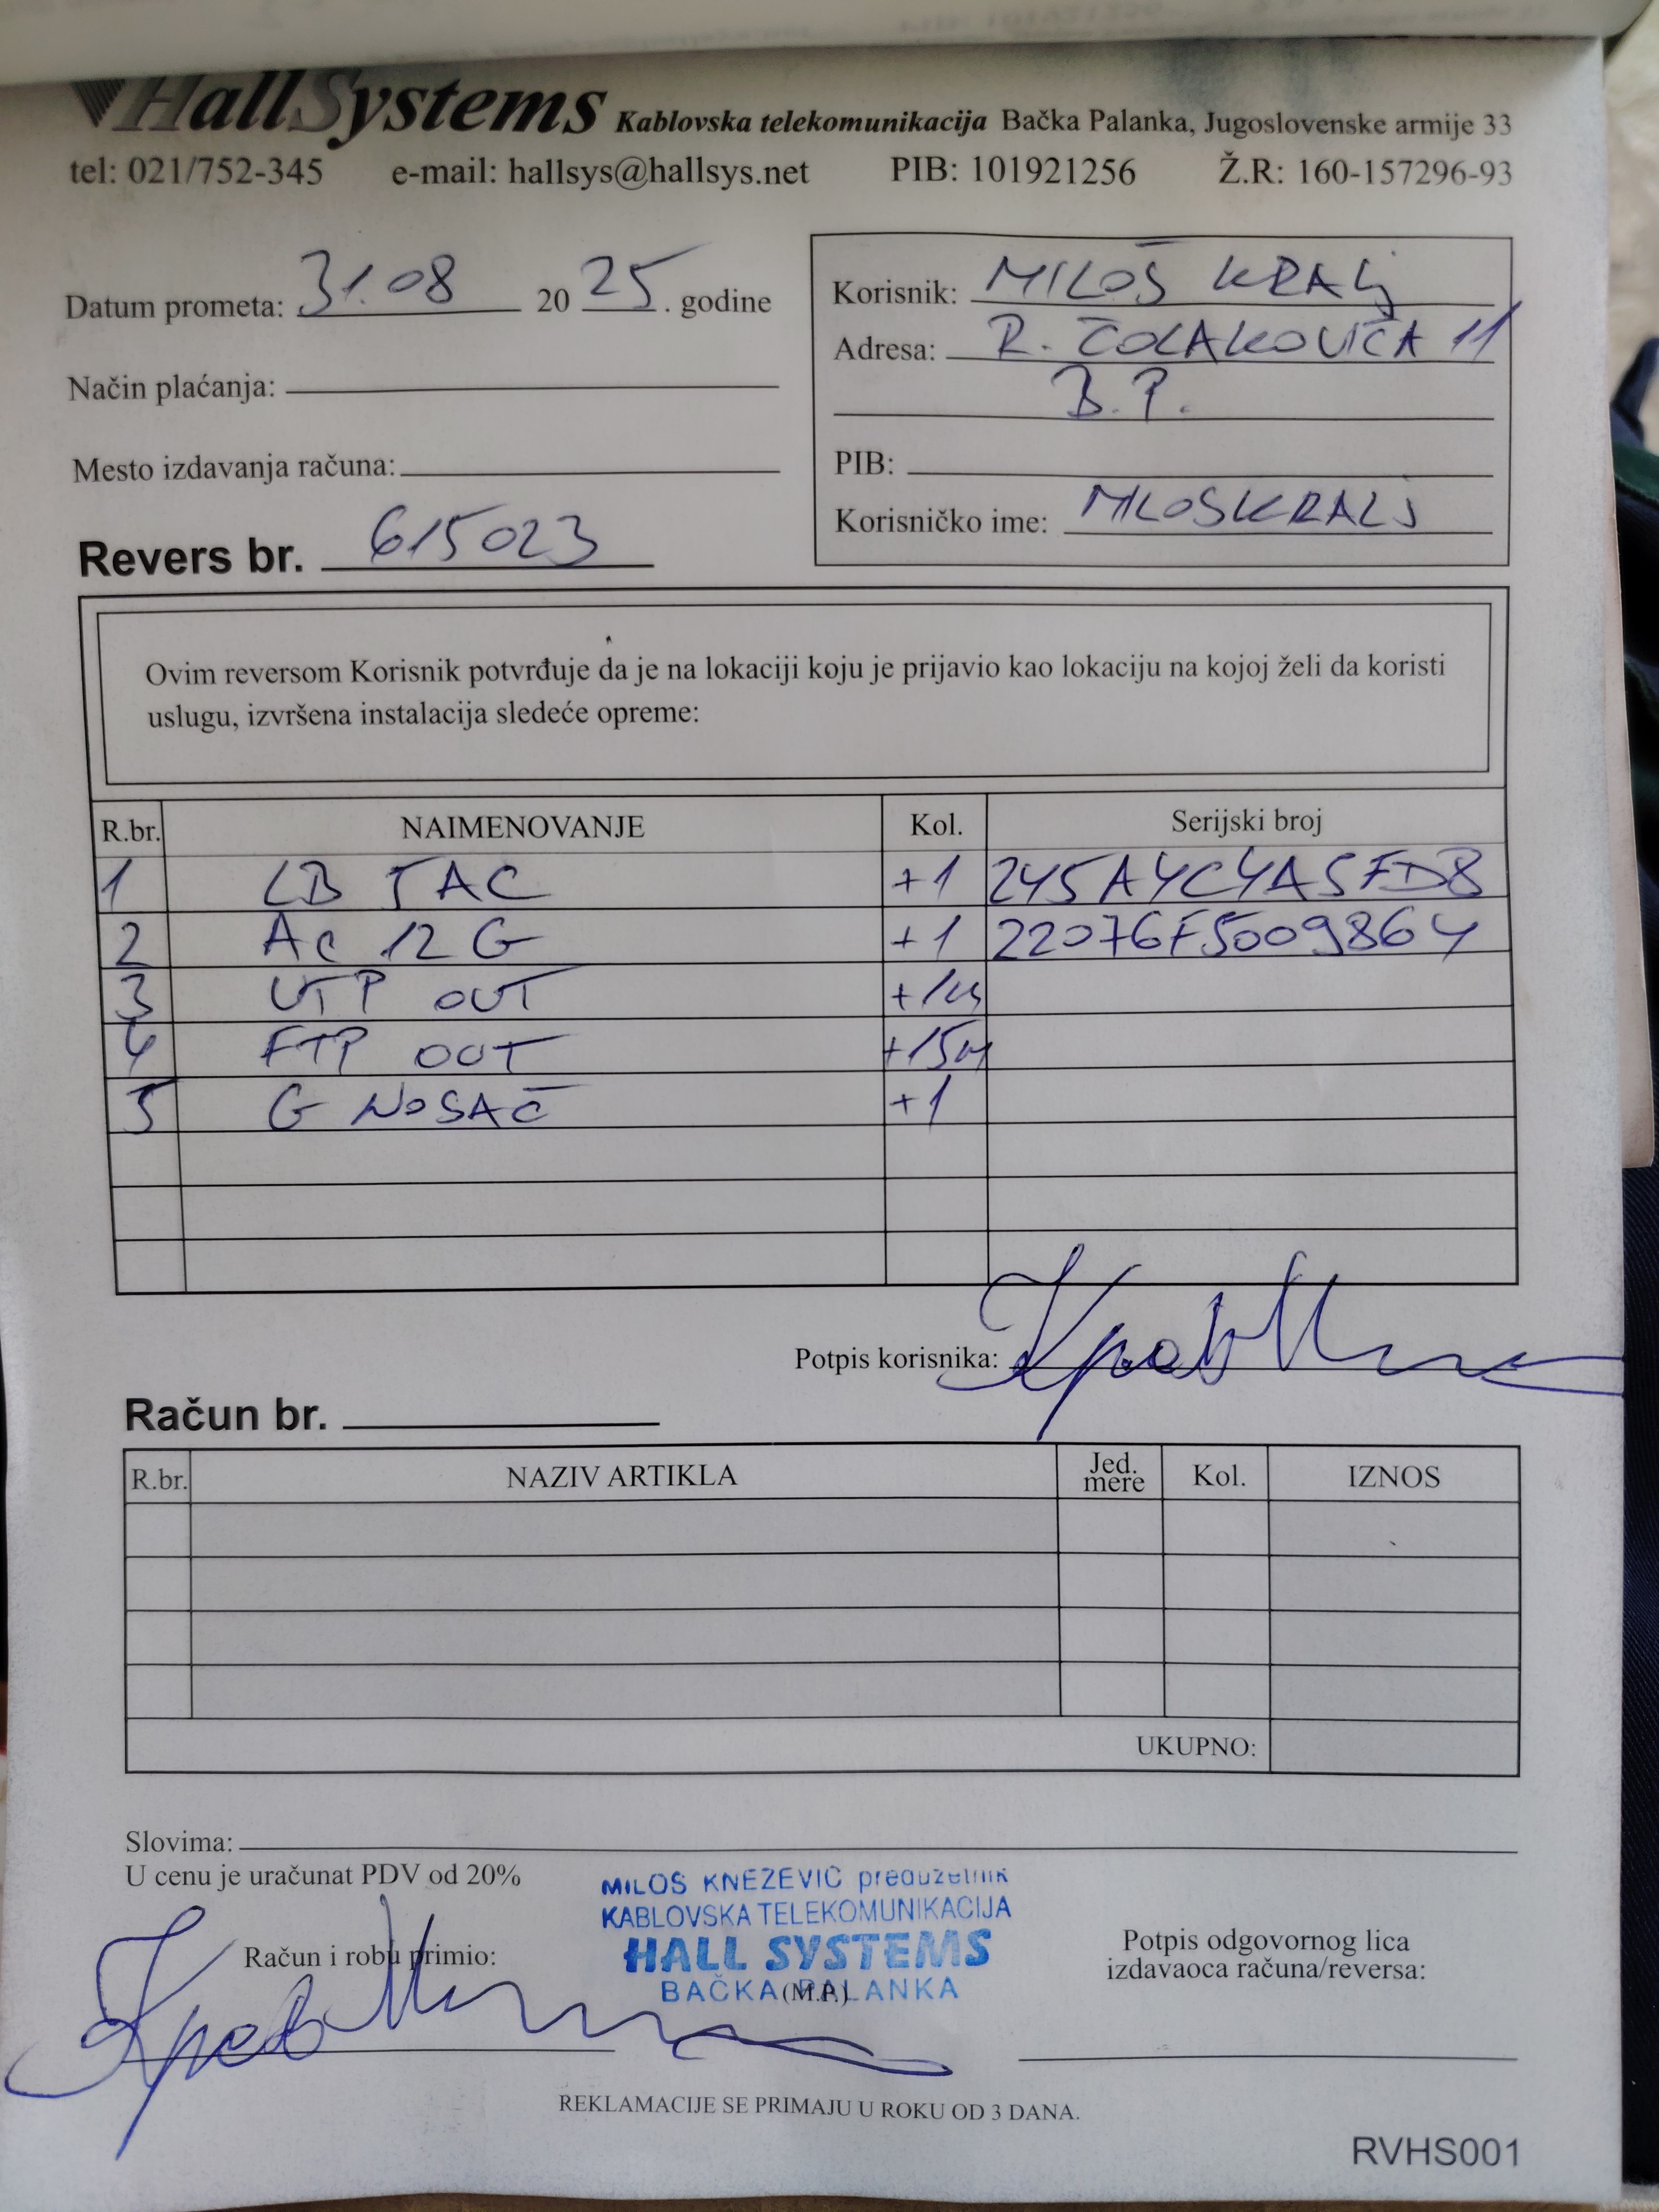 HallSystems Kablovska telekomunikacija Bačka Palanka, Jugoslovenske armije 33
tel: 021/752-345 e-mail: hallsys@hallsys.net PIB: 101921256 Ž.R: 160-157296-93
Datum prometa: 31.08 2025. godine
Način plaćanja:
Mesto izdavanja računa:
Revers br. 615023
Korisnik: MILOŠ KRALj
Adresa: R. ČOLAKOVIĆA 11
B.P.
PIB:
Korisničko ime: MILOSKRALJ
Ovim reversom Korisnik potvrđuje da je na lokaciji koju je prijavio kao lokaciju na kojoj želi da koristi
uslugu, izvršena instalacija sledeće opreme:
R.br. NAIMENOVANJE Kol. Serijski broj
1 LB 5AC +1 245A4C4A5FD8
2 AC 12 G +1 22076F5009864
3 UTP OUT
4 FTP OUT +15m
5 G NOSAČ +1
Potpis korisnika:
Račun br.
R.br. NAZIV ARTIKLA Jed. mere Kol. IZNOS
UKUPNO:
Slovima:
U cenu je uračunat PDV od 20%
MILOŠ KNEŽEVIĆ preduzetnik
KABLOVSKA TELEKOMUNIKACIJA
HALL SYSTEMS
BAČKA PALANKA
(M.P.)
Račun i robu primio:
Potpis odgovornog lica
izdavaoca računa/reversa:
REKLAMACIJE SE PRIMAJU U ROKU OD 3 DANA.
RVHS001